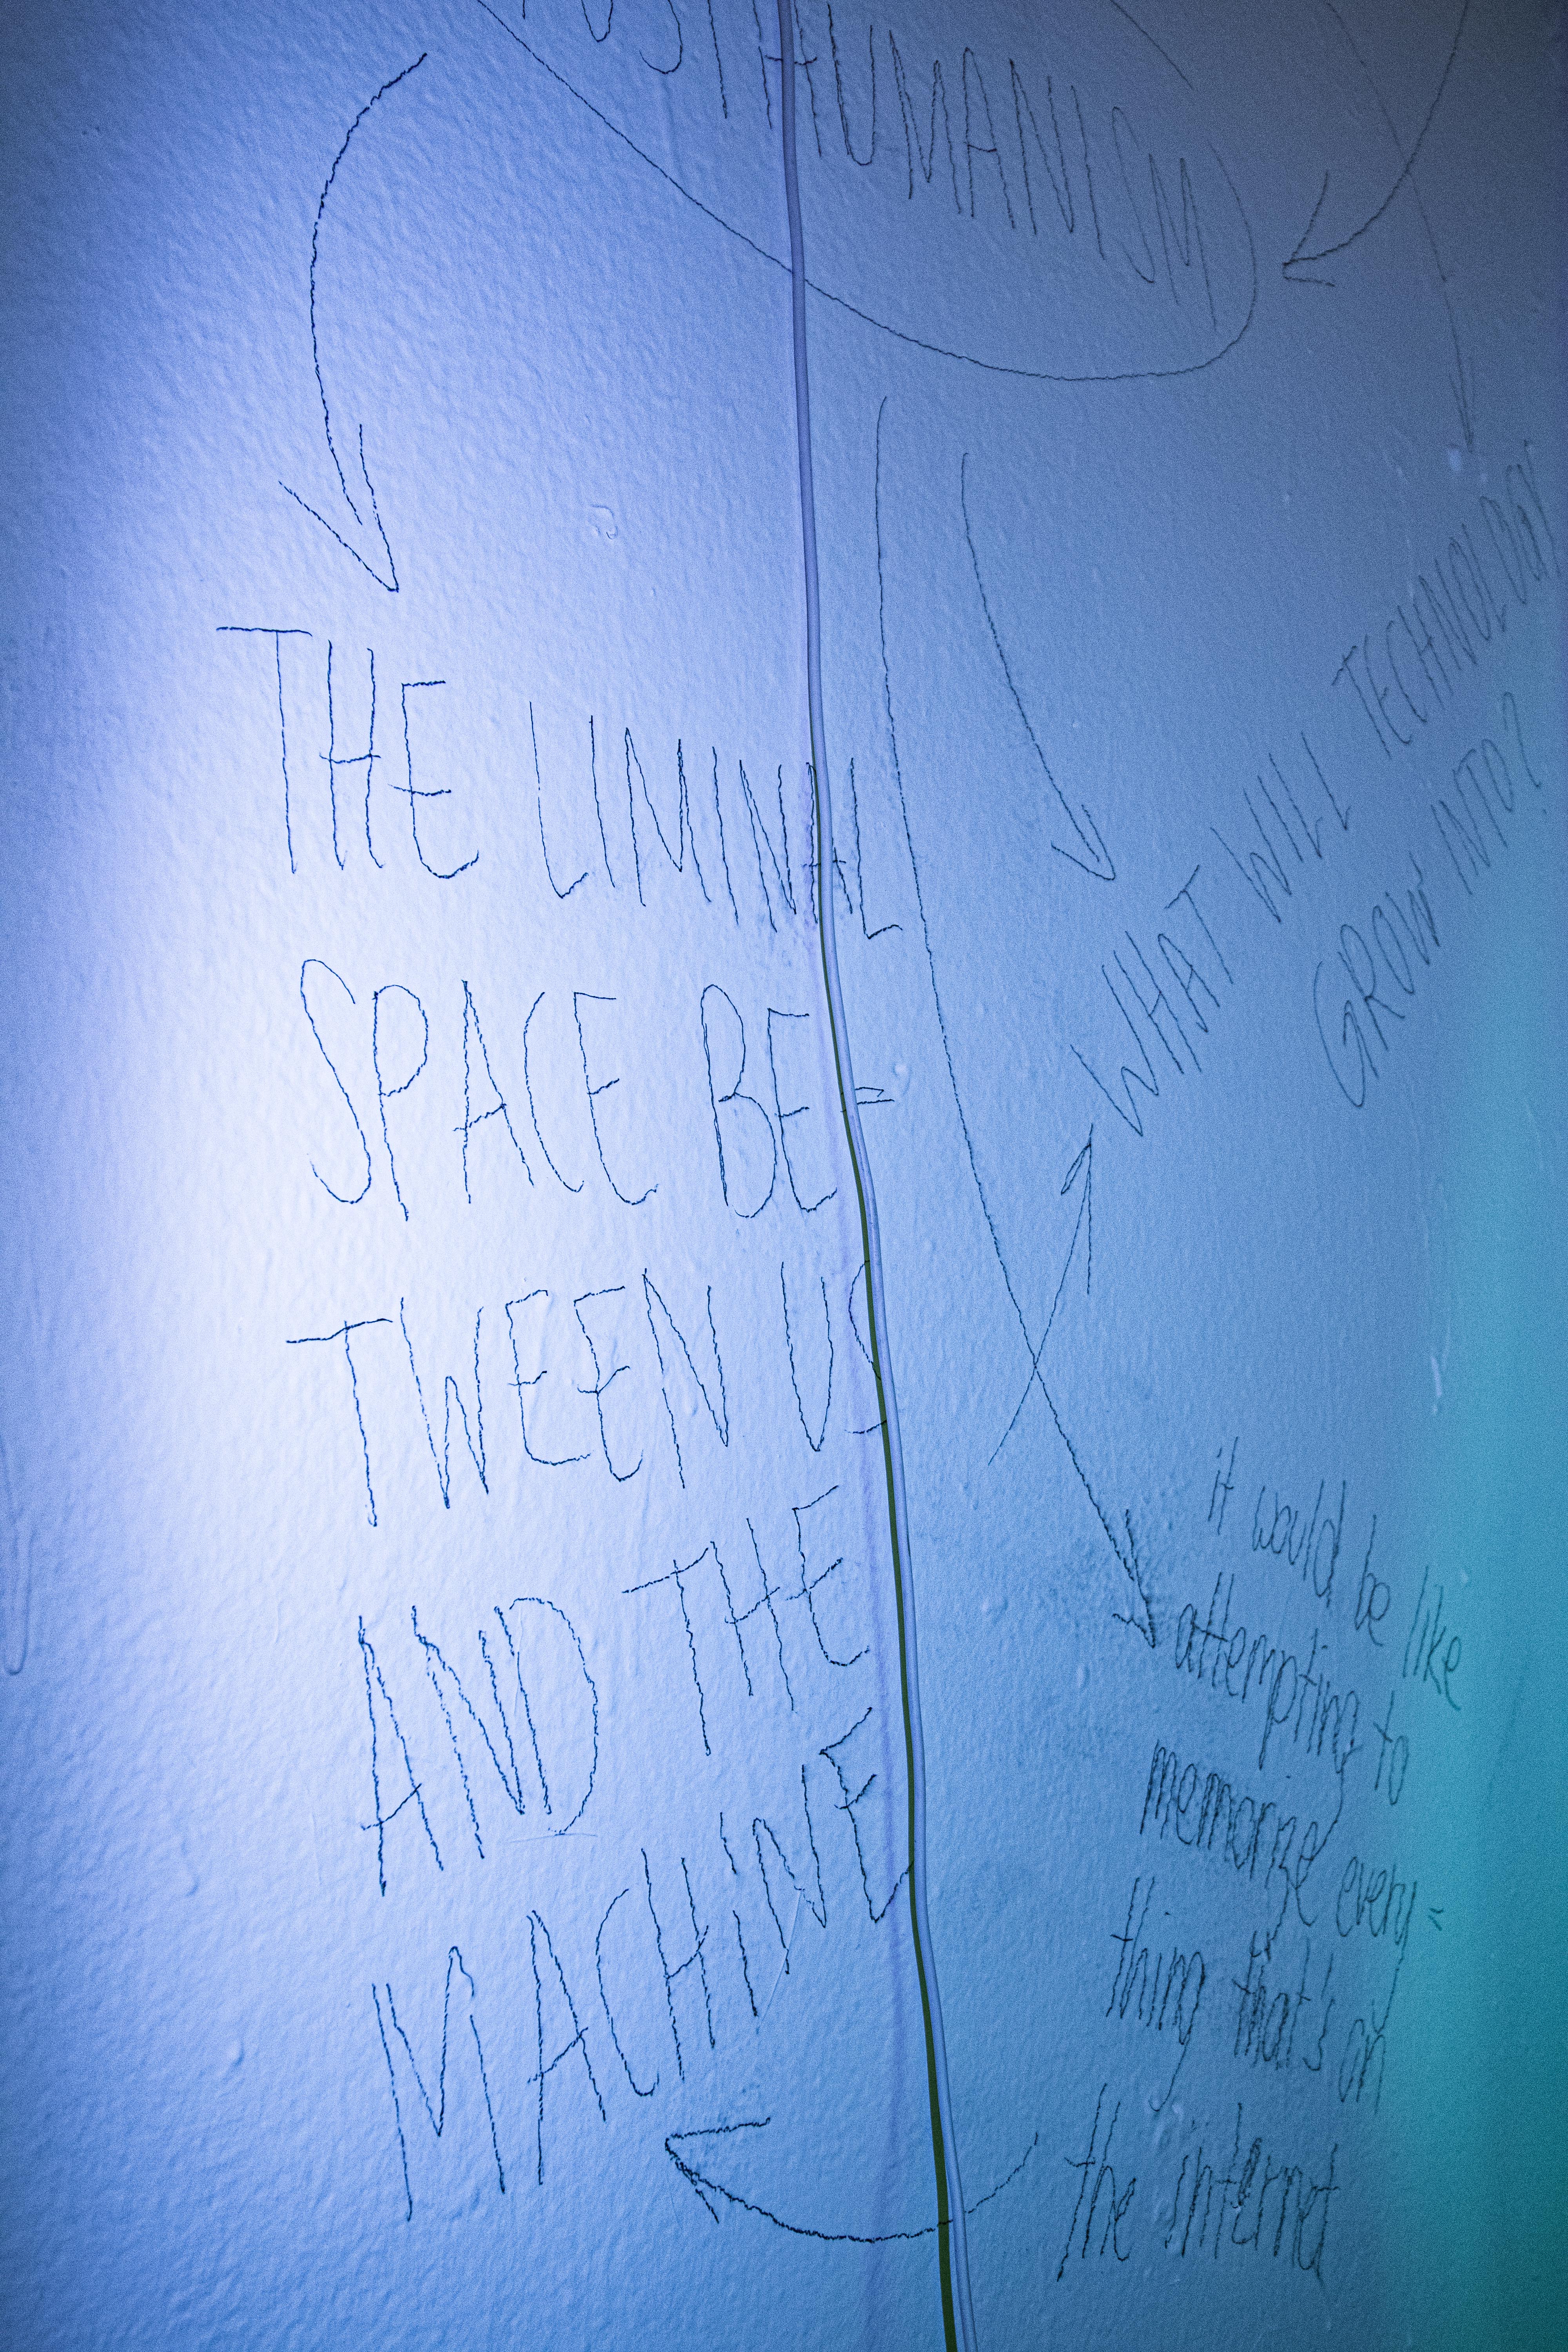 OSTHUMANISM
THE LIMINAL
SPACE BE=
TWEEN US
AND THE
MACHINE
WHAT WILL TECHNOLOGY
GROW INTO?
it would be like
attempting to
memorize every=
thing that's on
the internet